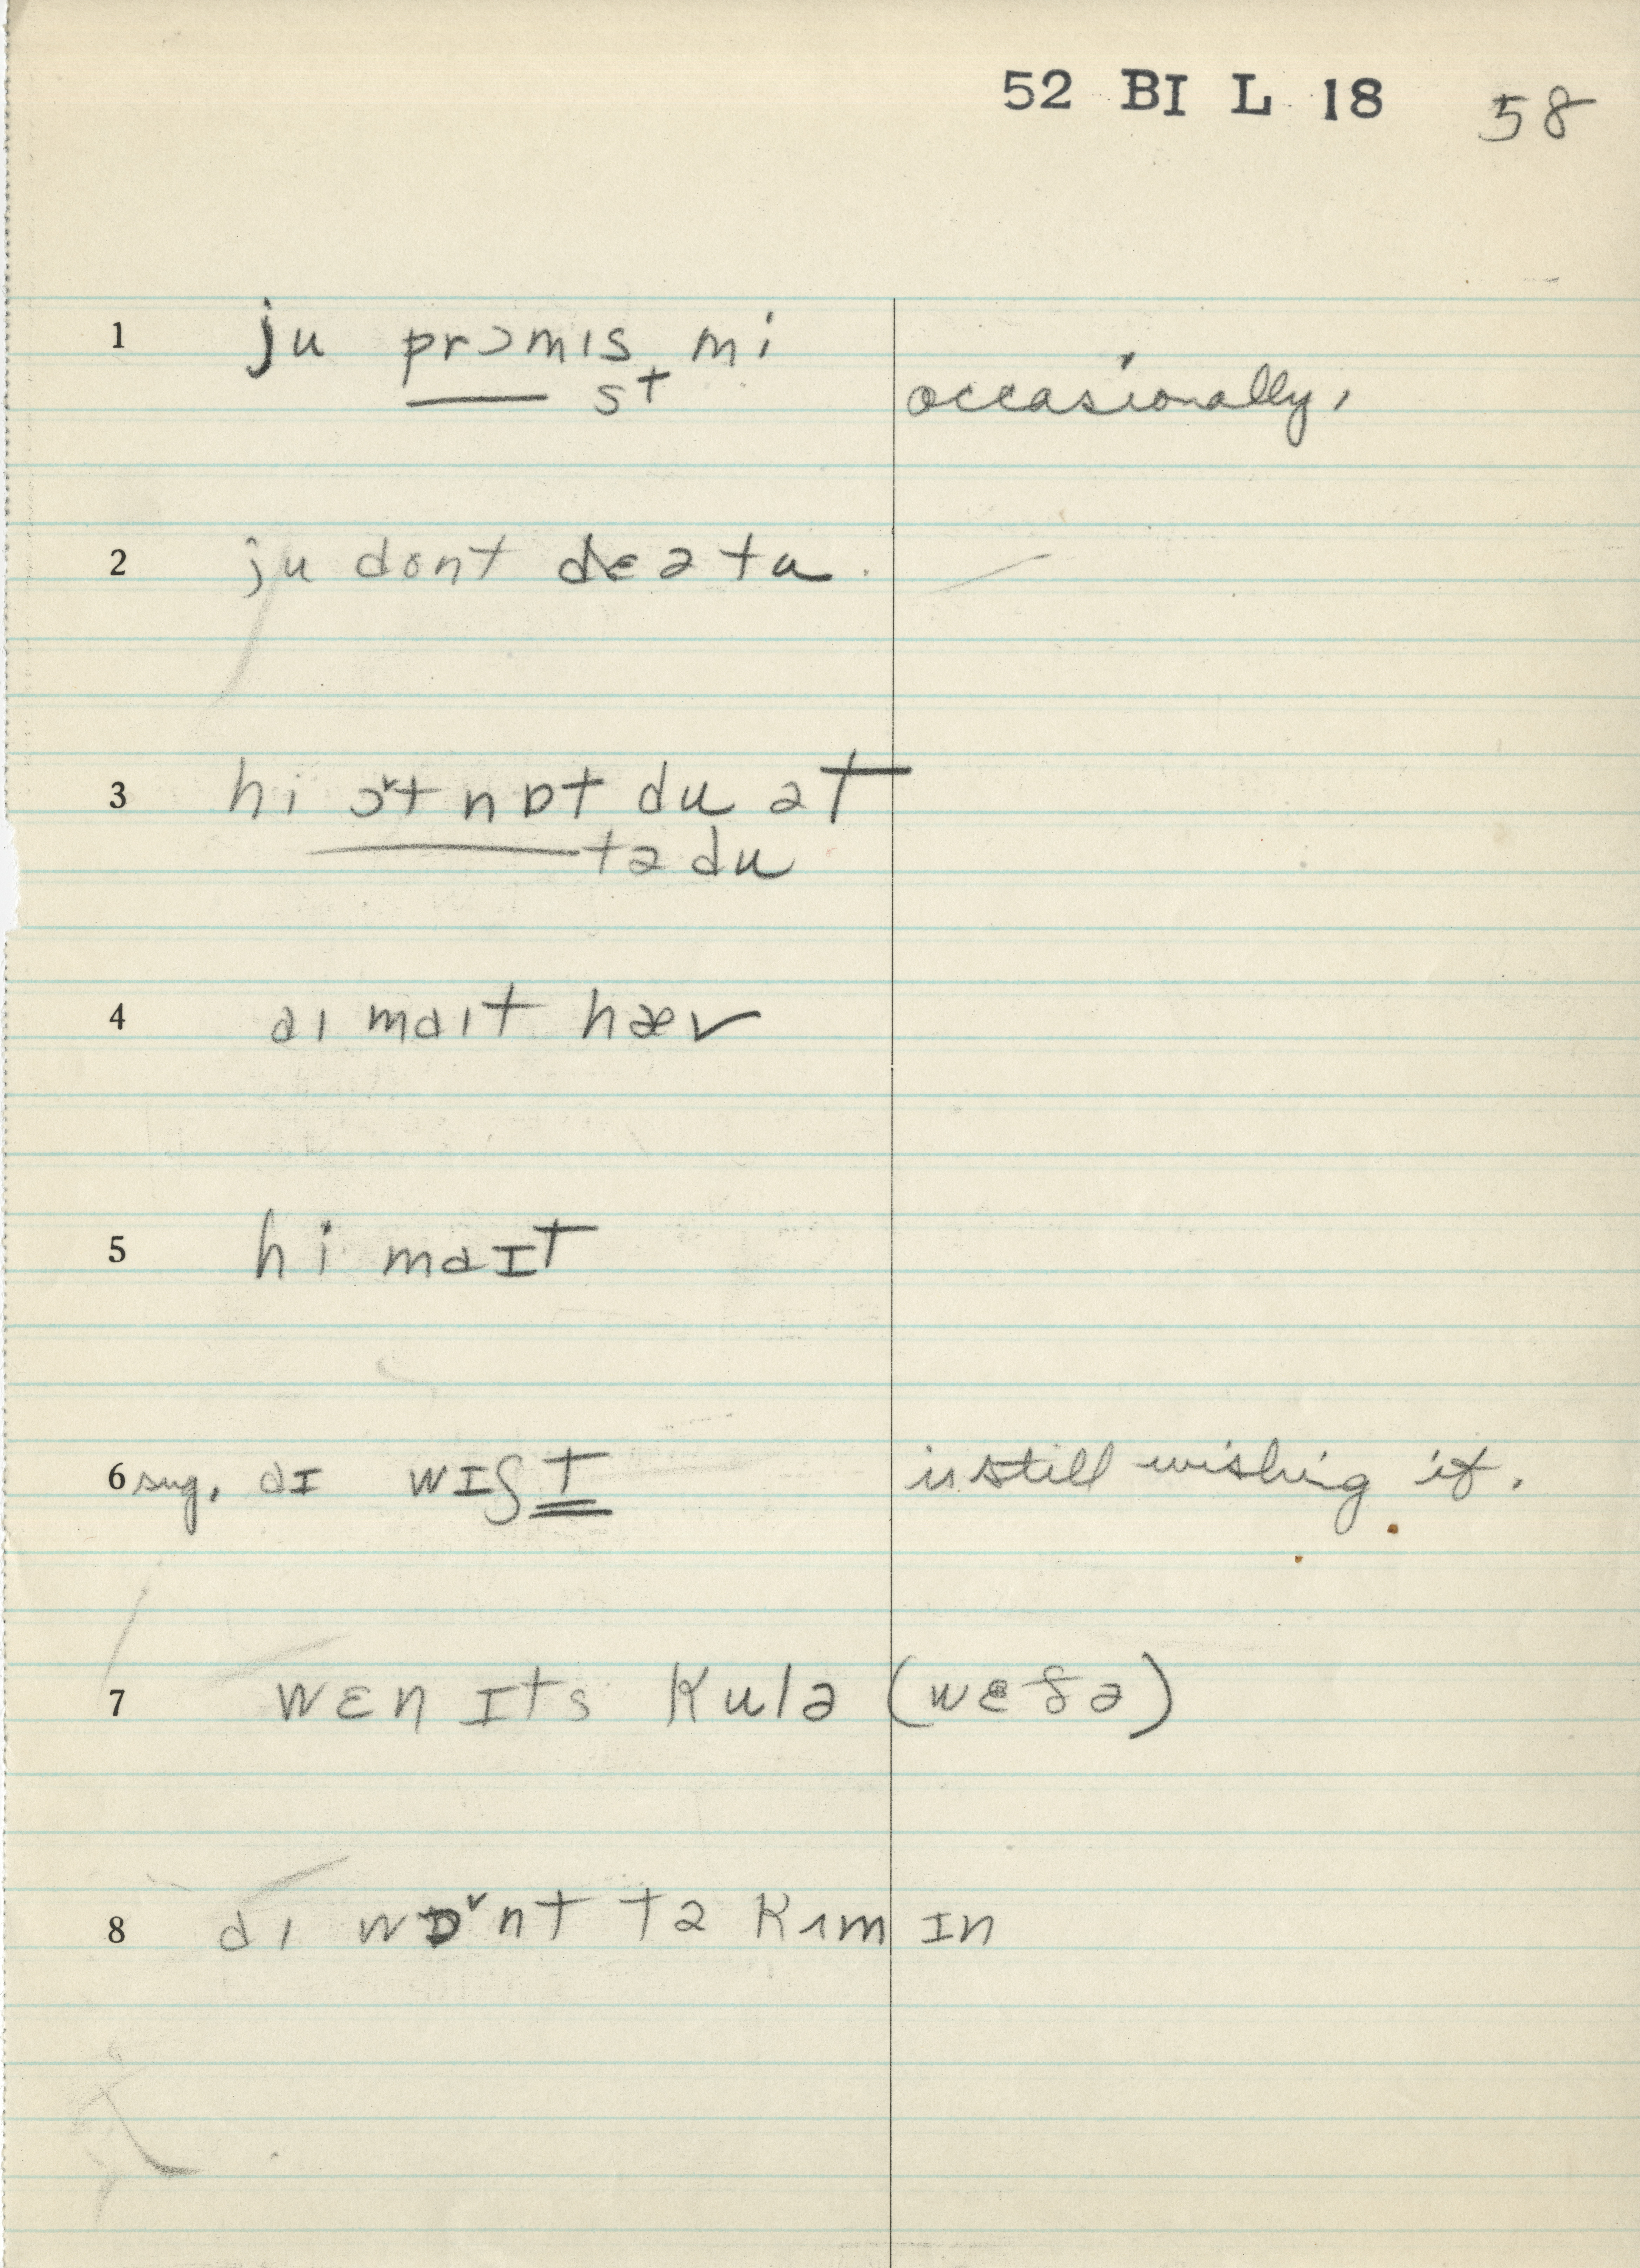 52 BI L 18 58
1 ju prɔmɪs mi
st occasionally,
2 ju dont dɛə tu
3 hi ɔ˅t nɒt du ət
tə du
4 aɪ maɪt hæv
5 hi maɪt
6 sug. aɪ wɪʃt is still wishing it.
7 wɛn ɪts kulə (wɛðə)
8 aɪ wɒ˅nt tə kʌm ɪn